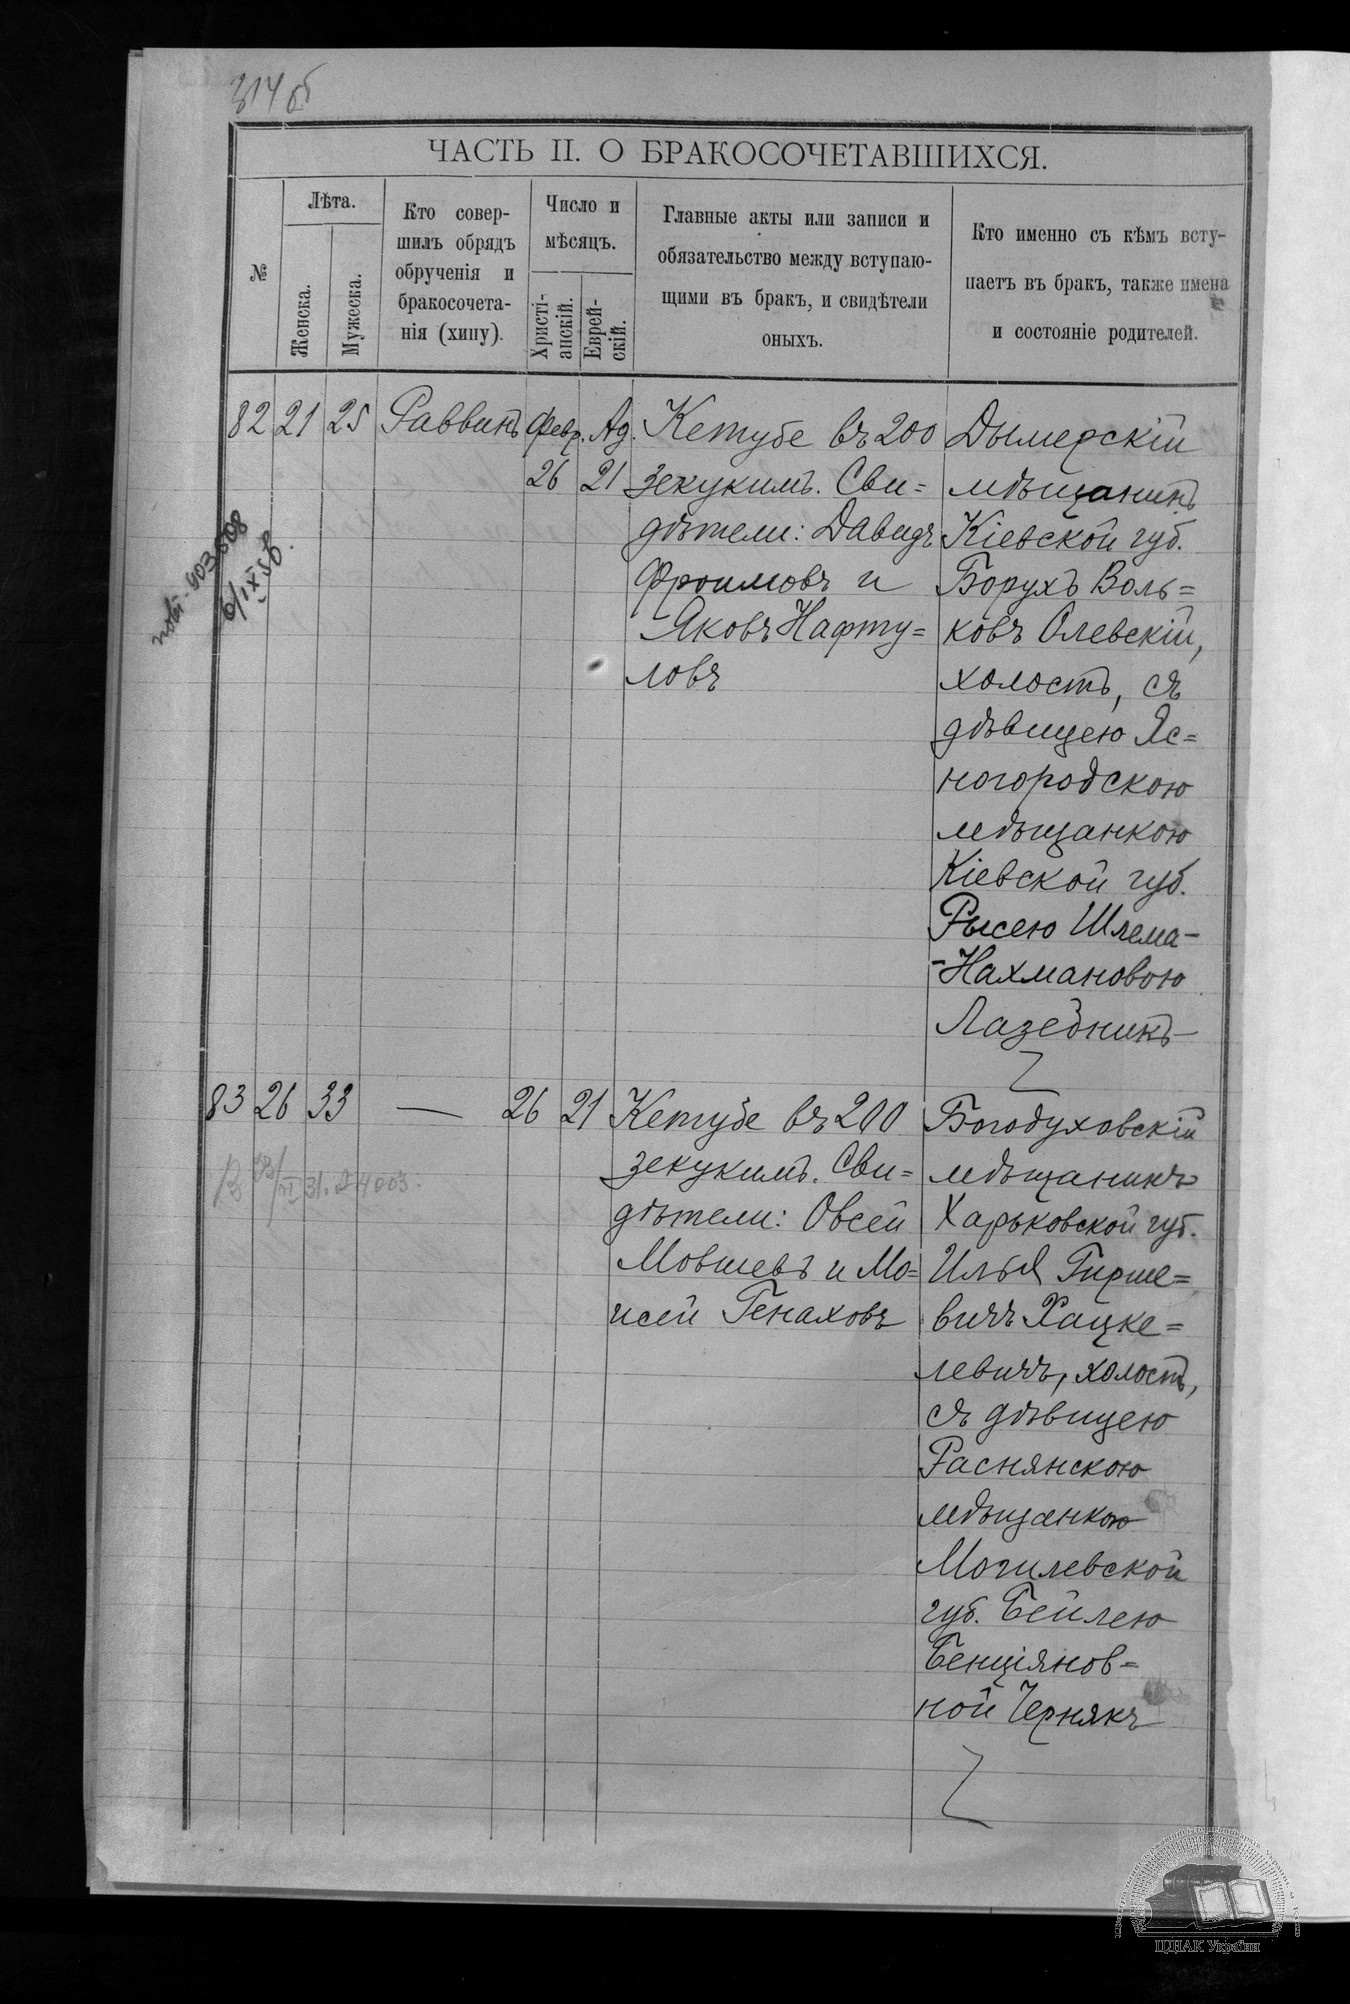 314 об
ЧАСТЬ II. О БРАКОСОЧЕТАВШИХСЯ.
№
Лѣта.
Женска.
Мужеска.
Кто совер-
шилъ обрядъ
обрученія и
бракосочета-
нія (хипу).
Число и
мѣсяцъ.
Христі-
анскій.
Еврей-
скій.
Главные акты или записи и
обязательство между вступаю-
щими въ бракъ, и свидѣтели
оныхъ.
Кто именно съ кѣмъ всту-
паетъ въ бракъ, также имена
и состояніе родителей.
82 21 25 Раввинъ Февр. Ад.
26 21
Кетубе въ 200
зекукимъ. Сви=
дѣтели: Давидъ
Фроимовъ и
Яковъ Нафту=
ловъ
Дымерскій
мѣщанинъ
Кіевской губ.
Борухъ Воль=
ковъ Олевскій,
холостъ, съ
дѣвицею Яс=
ногородскою
мѣщанкою
Кіевской губ.
Рысею Шлема-
-Нахмановою
Лазебникъ
6/IX 58.
83 26 33 — 26 21
Кетубе въ 200
зекукимъ. Сви=
дѣтели: Овсей
Мовшевъ и Мо=
исей Генаховъ
Богодуховскій
мѣщанинъ
Харьковской губ.
Илья Гирше=
вичъ Хацке=
левичъ, холостъ,
съ дѣвицею
Раснянскою
мѣщанкою
Могилевской
губ. Бейлею
Бенціянов=
ной Чернякъ
ЦДІАК України